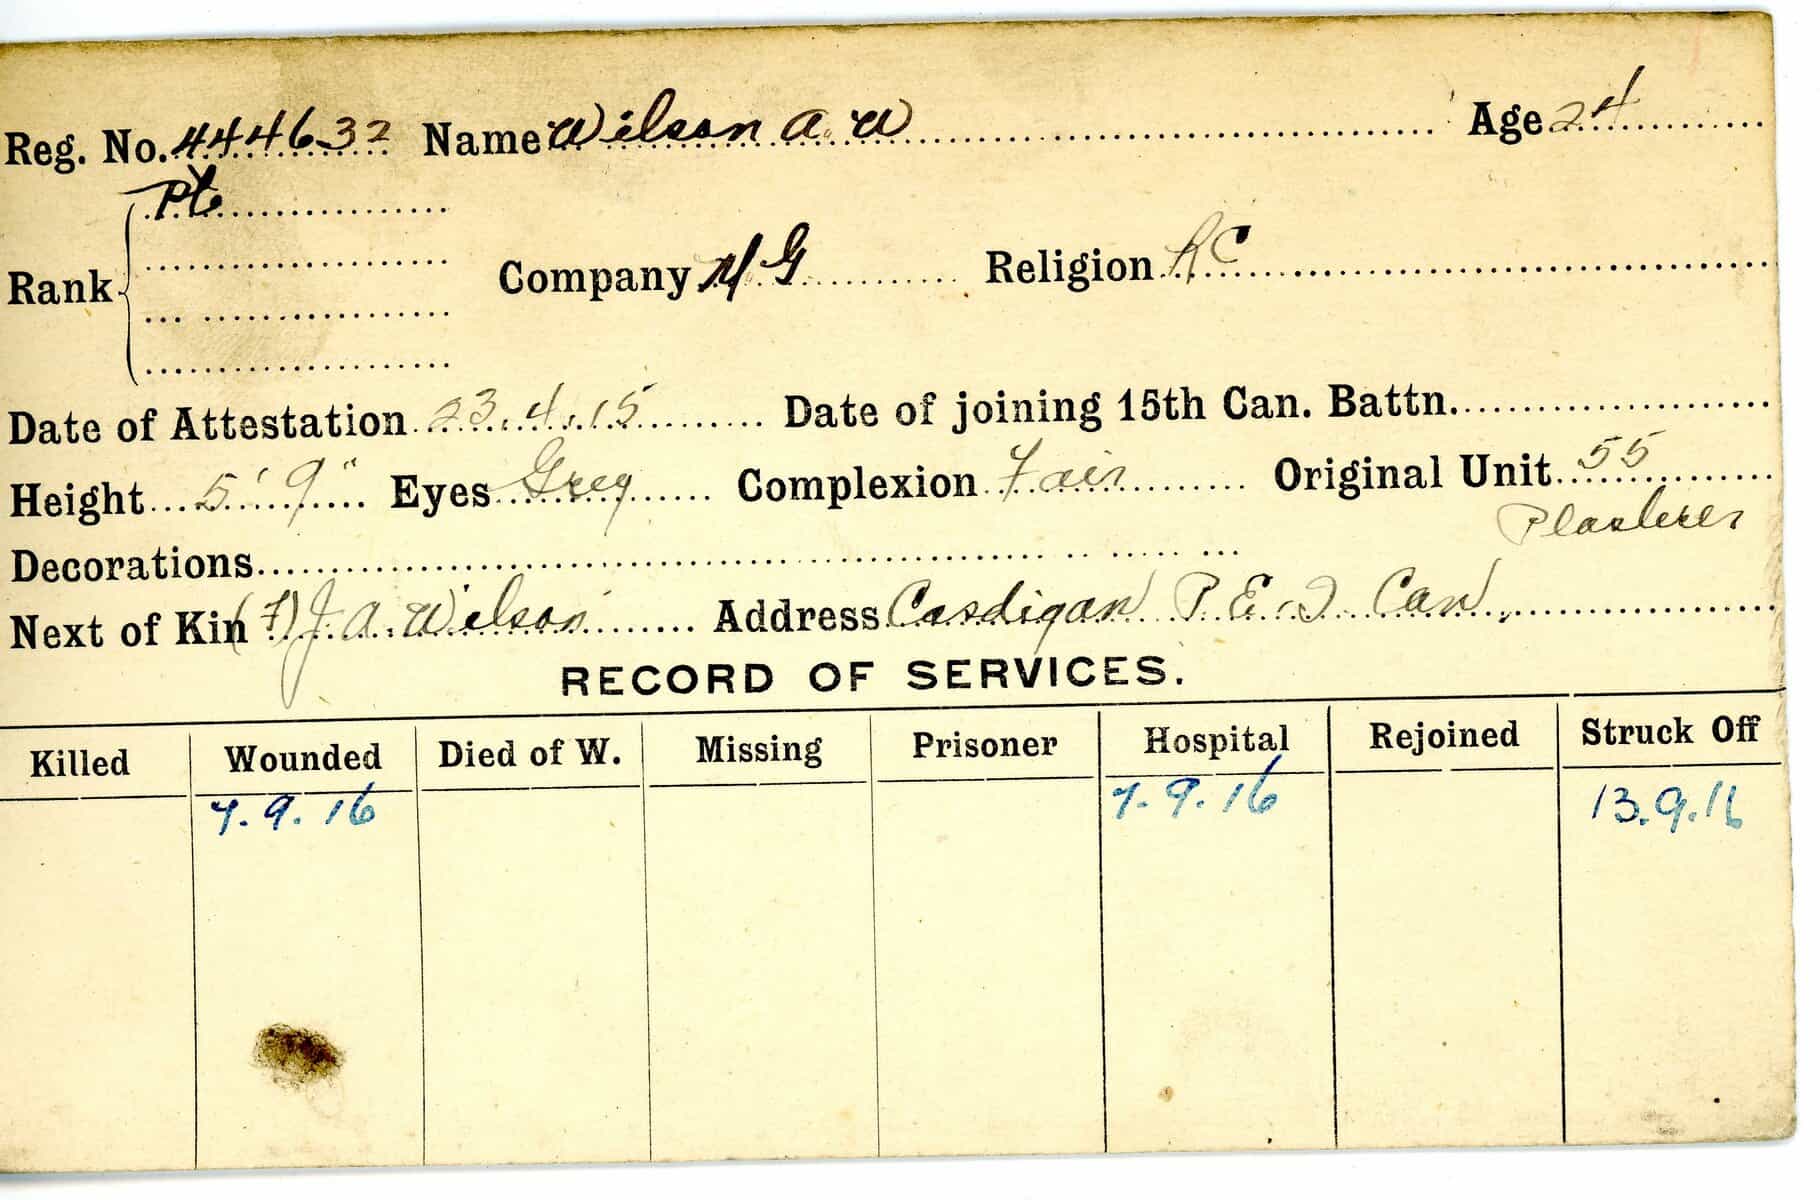 Reg. No. 444632 Name Wilson A. W Age 24
Pte
Rank Company MG Religion RC
Date of Attestation 23.4.15 Date of joining 15th Can. Battn.
Height 5' 9" Eyes Grey Complexion Fair Original Unit 55
Plasterer
Decorations
Next of Kin (F) J. A. Wilson Address Cardigan P. E. I Can
RECORD OF SERVICES.
Killed Wounded Died of W. Missing Prisoner Hospital Rejoined Struck Off
7.9.16 7.9.16 13.9.16